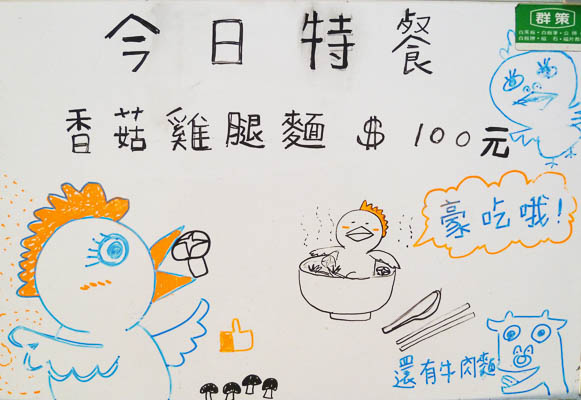 群策
今日特餐
香菇雞腿麵 $100元
豪吃哦!
還有牛肉麵